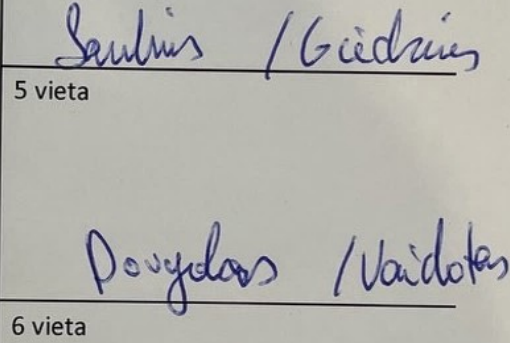 Saulius / Giedrius
5 vieta
Dougelaas / Vaidotas
6 vieta